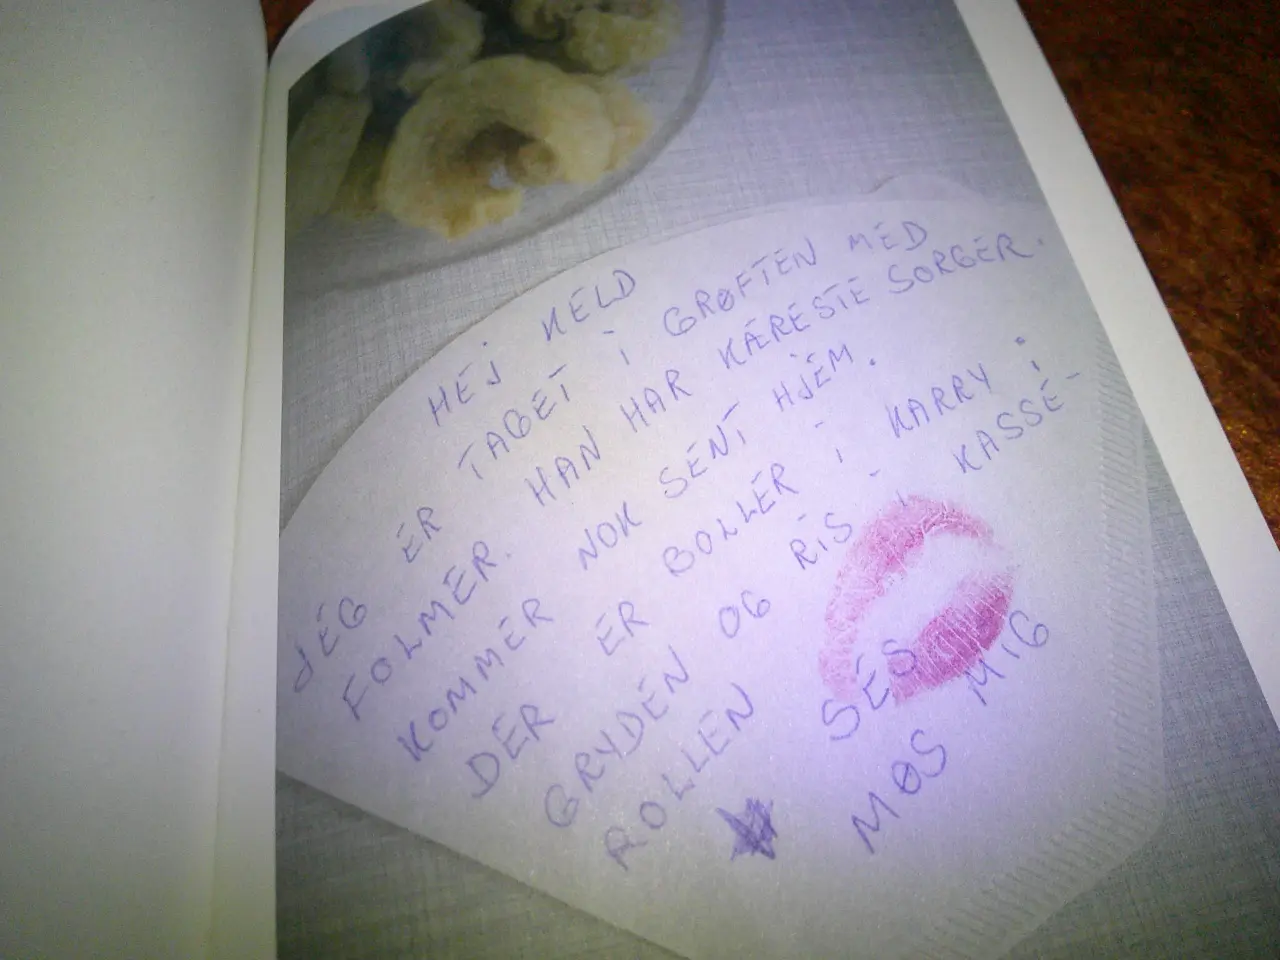 HEJ KELD
JEG ER TAGET i GRØFTEN MED
FOLMER. HAN HAR KÆRESTE SORGER.
KOMMER NOK SENT HJEM.
DER ER BOLLER i KARRY i
GRYDEN OG RiS i KASSE-
ROLLEN SES
MØS MIG